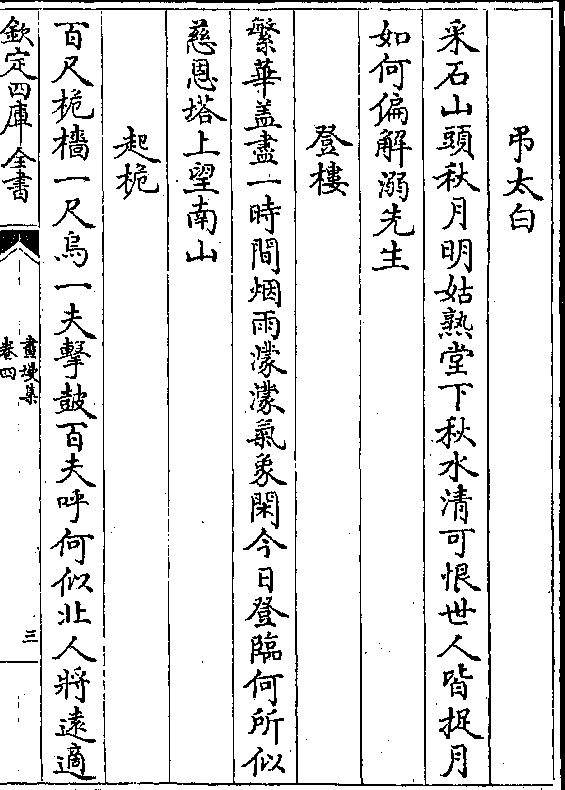 弔太白
采石山頭秋月明姑熟堂下秋水清可恨世人皆捉月
如何偏解溺先生
登樓
繁華盖盡一時間烟雨濛濛氣象閑今日登臨何所似
慈恩塔上望南山
起桅
百尺桅檣一尺烏一夫擊鼓百夫呼何似北人將遠適
欽定四庫全書
畫墁集
卷四
三